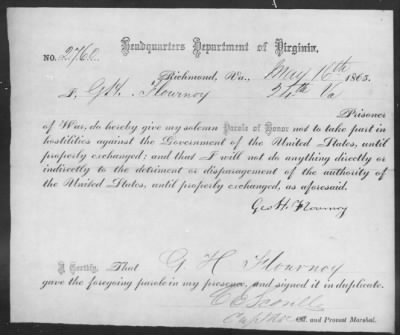 Headquarters Department of Virginia,
NO. 2760.
Richmond, Va., May 16th 1865.
I, G H. Flournoy 24th Va
Prisoner
of War, do hereby give my solemn Parole of Honor not to take part in
hostilities against the Government of the United States, until
properly exchanged; and that I will not do anything directly or
indirectly to the detriment or disparagement of the authority of
the United States, until properly exchanged, as aforesaid.
Geo H. Flournoy
I Certify, That G. H Flournoy
gave the foregoing parole in my presence, and signed it in duplicate.
and Provost Marshal.